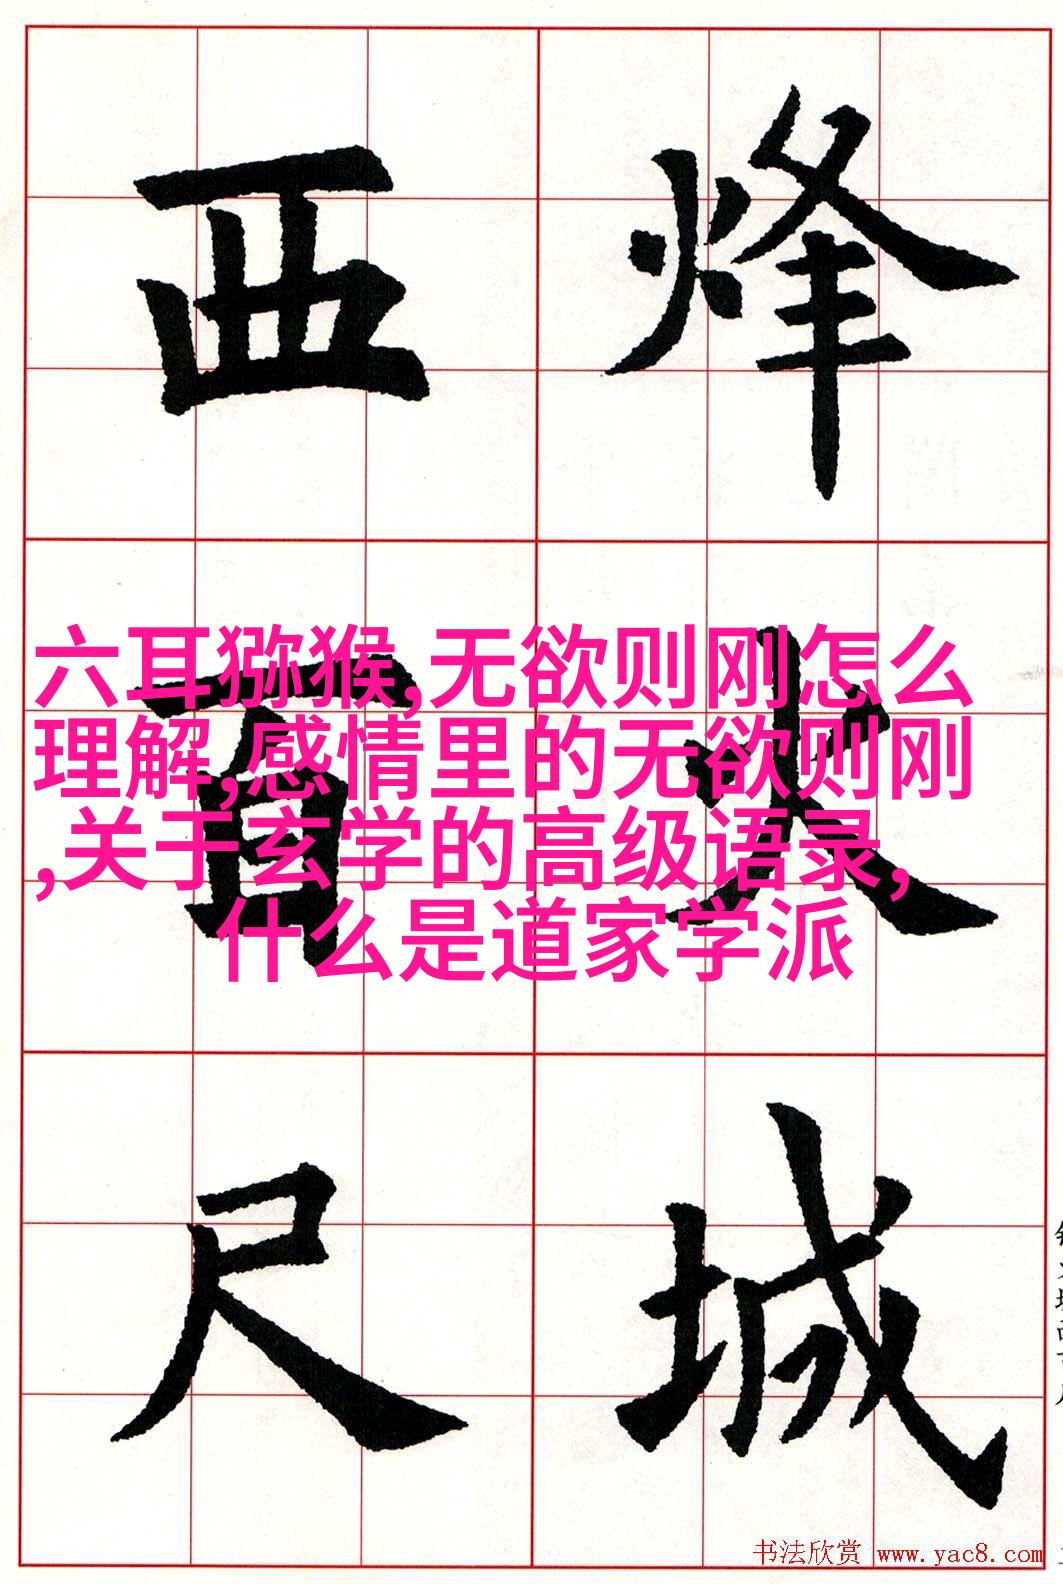 烽火城
西百尺
六耳猕猴,无欲则刚怎么
理解,感情里的无欲则刚
,关于玄学的高级语录,
什么是道家学派
书法欣赏 www.yac8.com